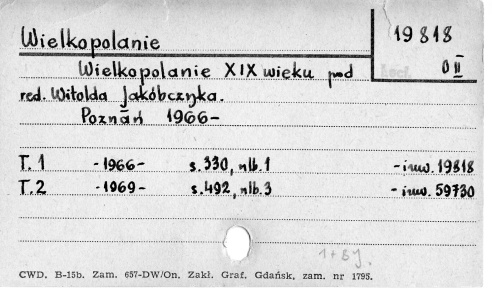 Wielkopolanie
19818
0 II
Wielkopolanie XIX wieku pod
red. Witolda Jakóbczyka.
Poznań 1966-
T. 1 -1966- s. 330, nlb. 1 -inw. 19818
T. 2 -1969- s. 492, nlb. 3 -inw. 59730
CWD. B-15b. Zam. 657-DW/On. Zakł. Graf. Gdańsk, zam. nr 1795.